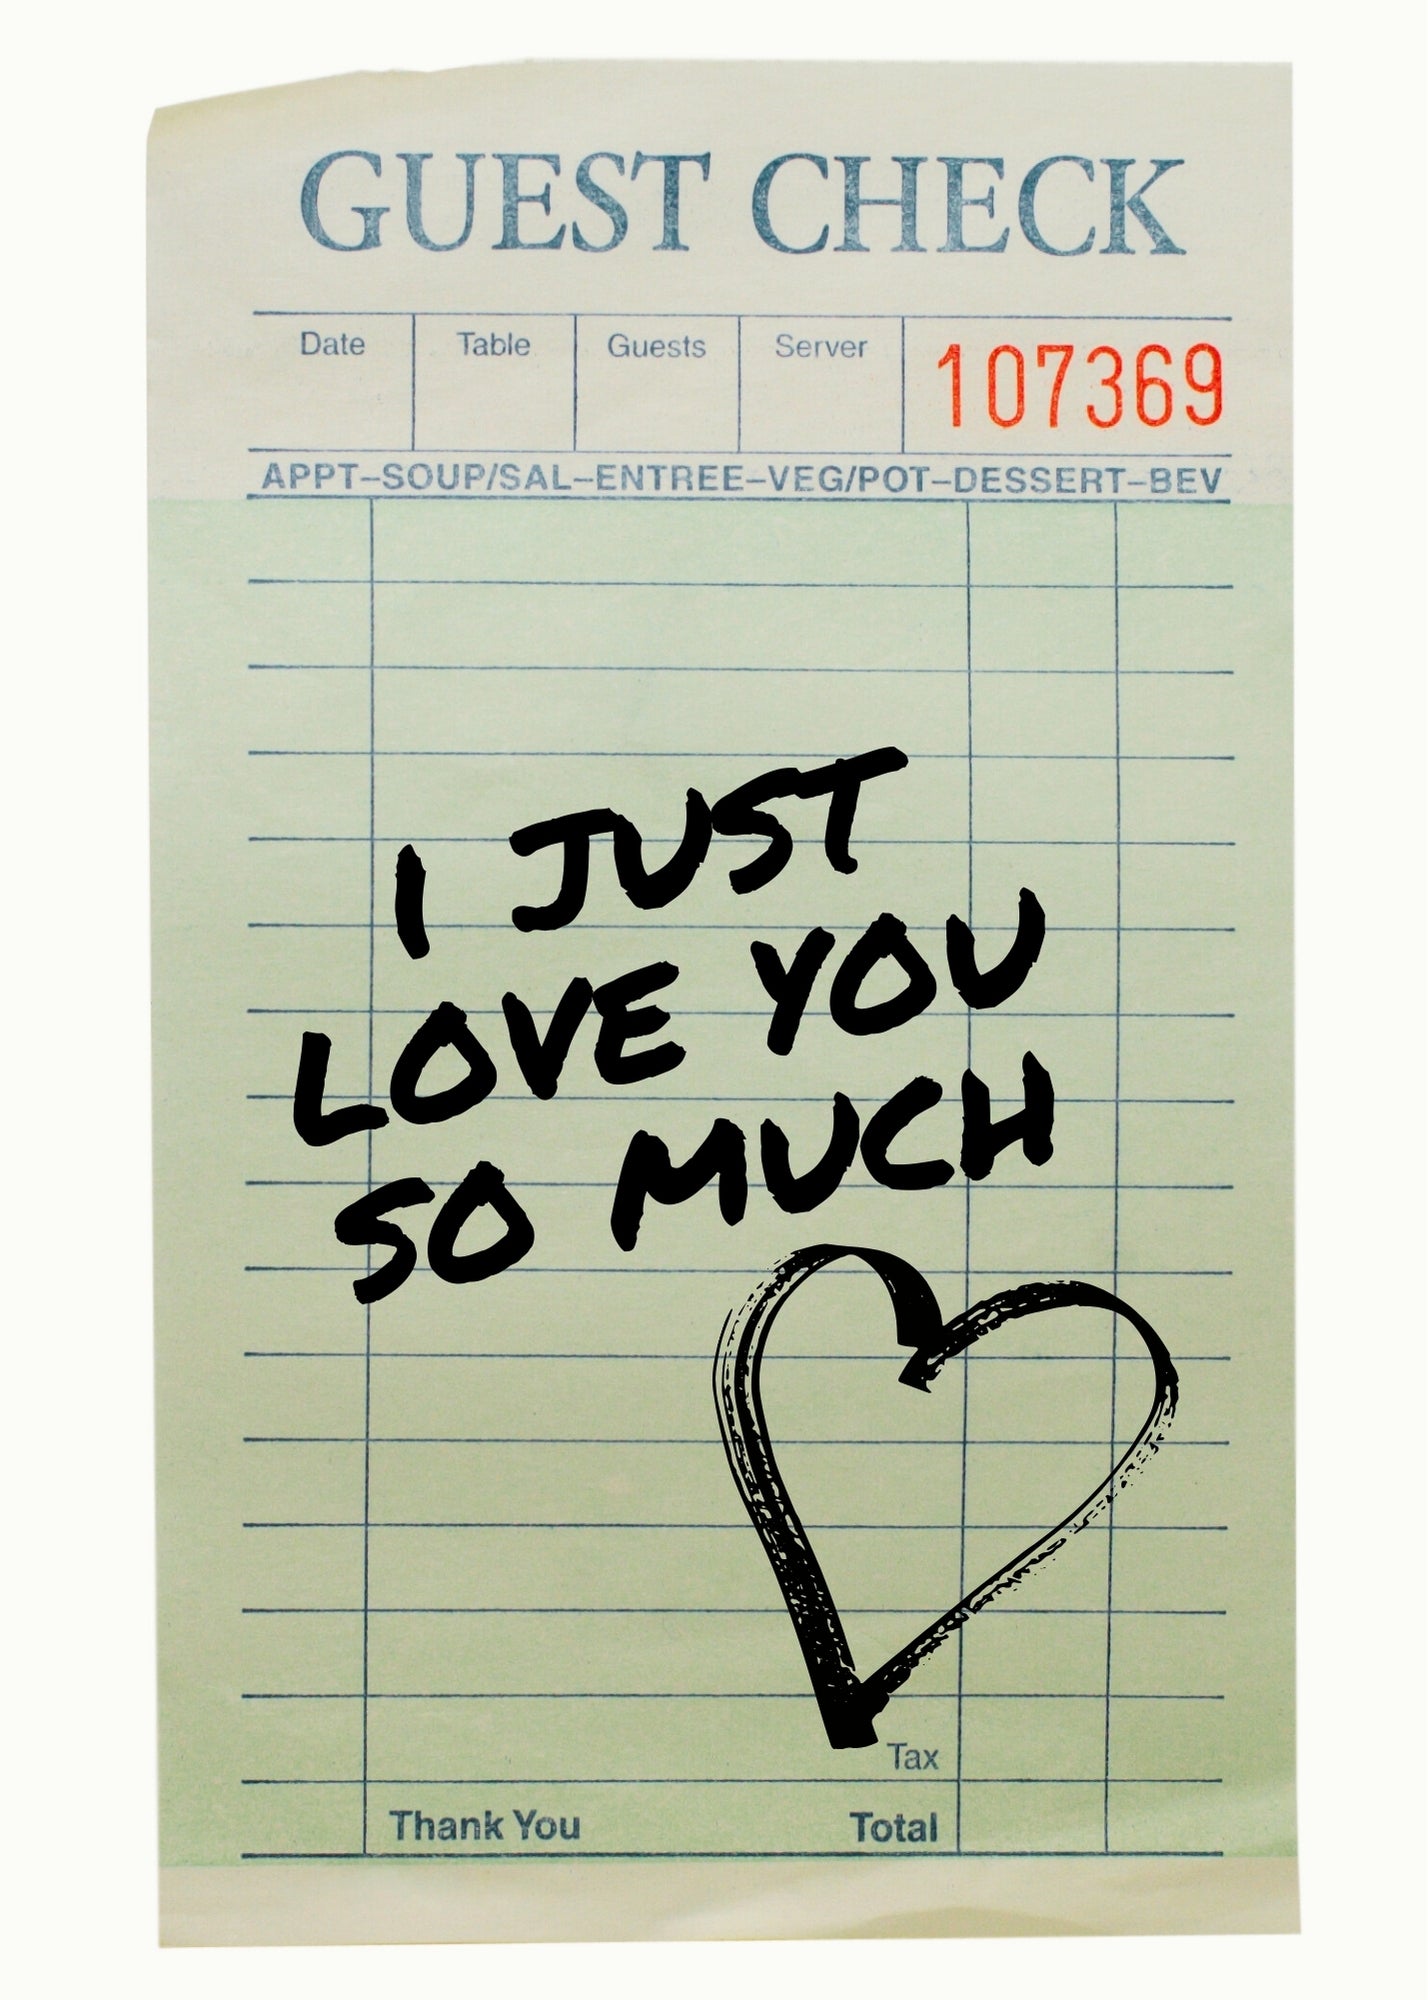 GUEST CHECK
Date Table Guests Server 107369
APPT–SOUP/SAL–ENTREE–VEG/POT–DESSERT–BEV
I JUST
LOVE YOU
SO MUCH
Tax
Thank You Total